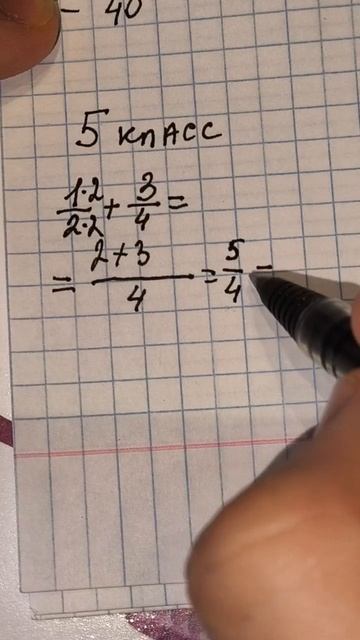 - 40
5 класс
1·2/2·2 + 3/4 =
= 2+3/4 = 5/4 =